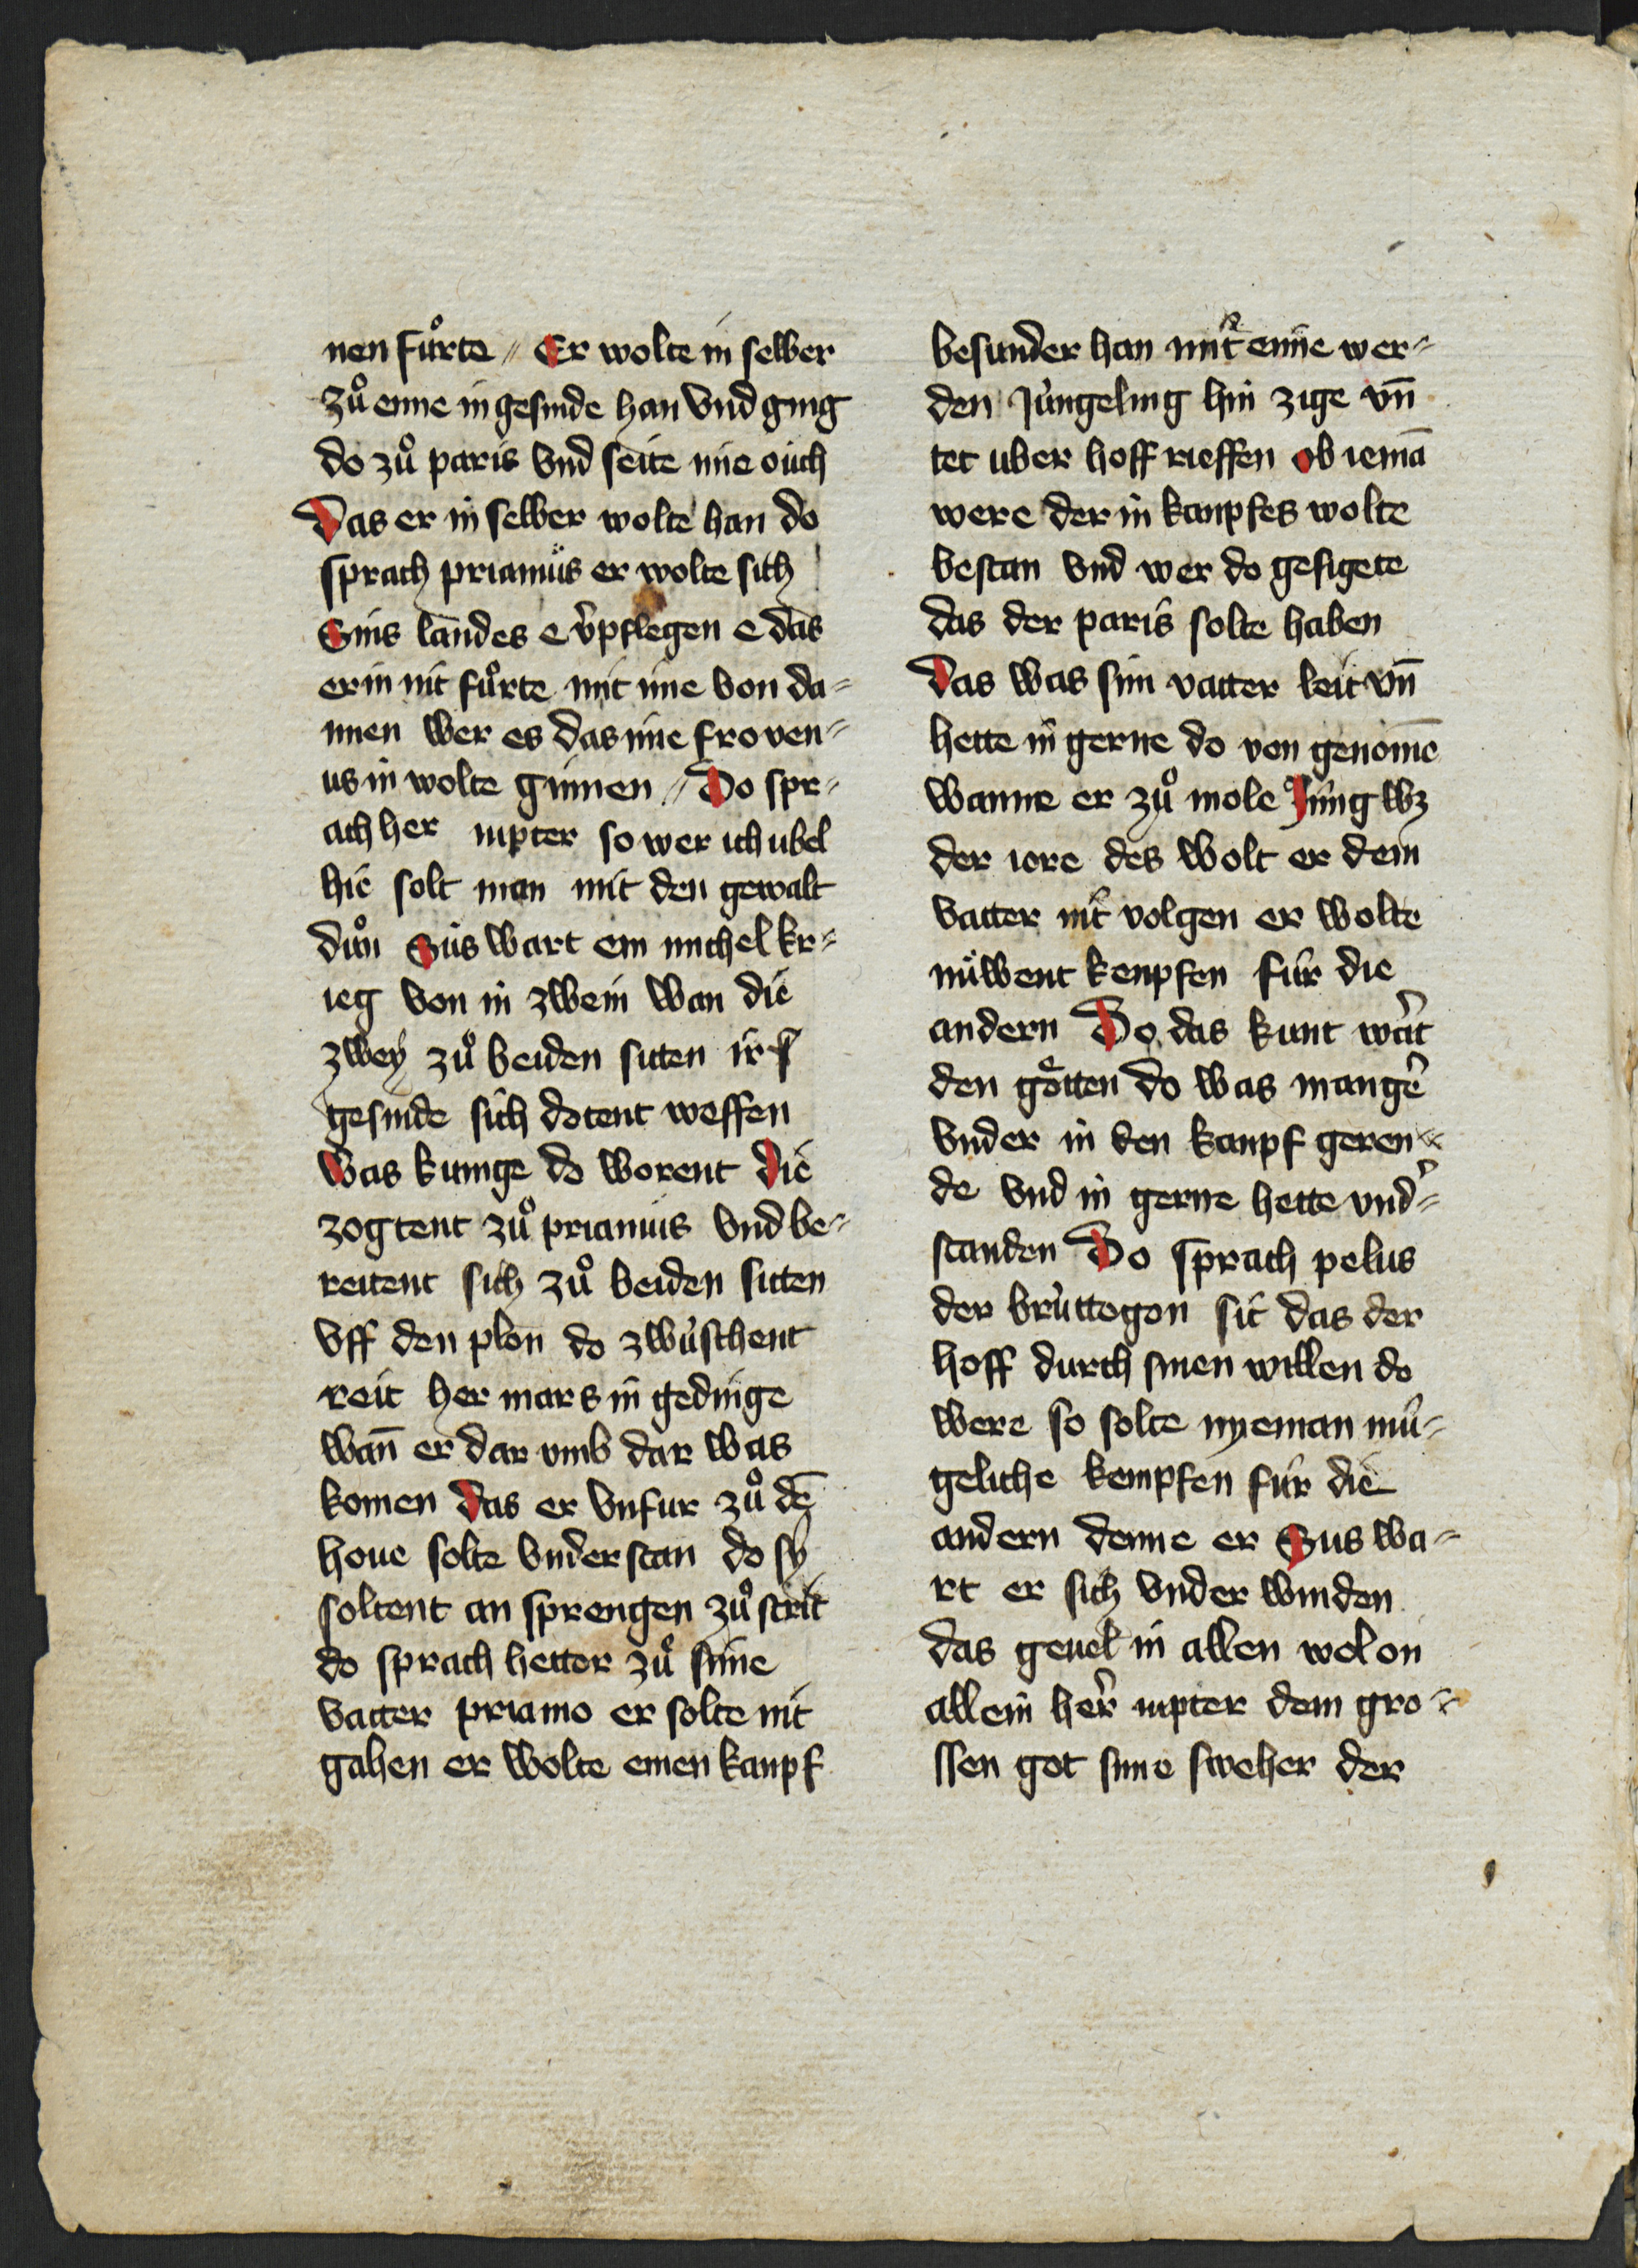 nen fuͦrte // Er wolte in selber
zuͦ eime in gesinde han vnd ging
do zuͦ paris vnd seite ime ouch
Das er in selber wolte han do
sprach priamus er wolte sich
Sins landes e v̾pflegen e das
er in nit fuͦrte mit ime von da=
nnen wer es das ime fro ven=
us in wolte ginnen // Do spr=
ach her iupter so wer ich ubel
hie solt man mit den gewalt
duͦn Sus wart ein michel kr=
ieg von in zwein wan die
zwey zuͦ beiden sitten ir
gesinde sich dotent weffen
Was kunige do worent Die
zogtent zuͦ priamus vnd be=
reitent sich zuͦ beiden sitten
vff den plon do zwuschent
reit her mars in gedinge
wan̄ er dar vmb dar was
komen Das er vnfur zuͦ dē
houe solte vnderstan do sy
soltent an sprengen zuͦ strit
do sprach hettor zuͦ sime
vatter priamo er solte nit
gahen er wolte einen kanpf
besunder han mit eime wer=
den Jungeling hin zige vn̄
tet uber hoff rieffen ob iemā
were der in kanpfes wolte
bestan vnd wer do gesigete
das der paris solte haben
Das was sim vatter leit vn̄
hette in gerne do von genomē
wanne er zuͦ mole Jung wz
der iore des wolt er dem
vatter nit volgen er wolte
nuwent kenpfen fur die
andern Do das kunt wart
den goͤtten do was mang̾
vnder in den kanpf geren=
de vnd in gerne hette vnd̾=
standen Do sprach pelus
der bruttegon sit das der
hoff durch sinen willen do
were so solte nyeman mu=
geliche kempfen fur die
andern denne er Sus wa=
rt er sich vnder winden
das geuel in allen wol on
allein her̾ iupter dem gro=
ssen got sime sweher der